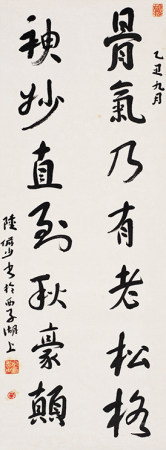 乙丑九月
骨氣乃有老松格
神妙直到秋豪顛
陸儼少书於西子湖上